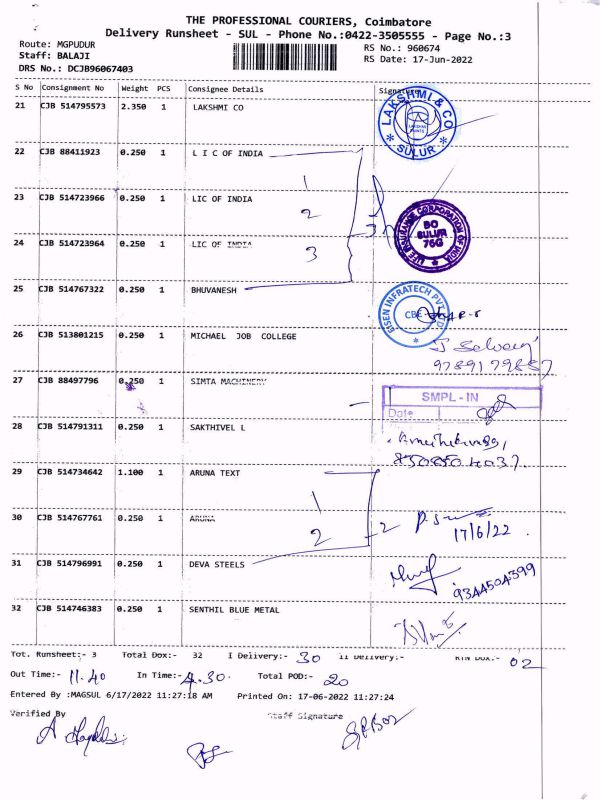 THE PROFESSIONAL COURIERS, Coimbatore
Delivery Runsheet - SUL - Phone No.:0422-3505555 - Page No.:3
Route: MGPUDUR
RS No.: 960674
Staff: BALAJI
RS Date: 17-Jun-2022
DRS No.: DCJB96067403
S No Consignment No Weight PCS Consignee Details Signature
21 CJB 514795573 2.350 1 LAKSHMI CO
LAKSHMI & CO
SULUR
22 CJB 88411923 0.250 1 L I C OF INDIA
1
23 CJB 514723966 0.250 1 LIC OF INDIA
2
LIFE INSURANCE CORPORATION OF INDIA
BO
SULUR
76G
24 CJB 514723964 0.250 1 LIC OF INDIA
3
25 CJB 514767322 0.250 1 BHUVANESH
INFRATECH PVT LTD
CBE
26 CJB 513801215 0.250 1 MICHAEL JOB COLLEGE
9789179887
27 CJB 88497796 0.250 1 SIMTA MACHINERY
SMPL - IN
Date
28 CJB 514791311 0.250 1 SAKTHIVEL L
29 CJB 514734642 1.100 1 ARUNA TEXT
1
30 CJB 514767761 0.250 1 ARUNA
2
2
17/6/22.
31 CJB 514796991 0.250 1 DEVA STEELS
9344504399
32 CJB 514746383 0.250 1 SENTHIL BLUE METAL
Tot. Runsheet:- 3 Total Dox:- 32 I Delivery:- 30 II Delivery:- RTN Dox:- 02
Out Time:- 11.40 In Time:- 4.30. Total POD:- 20
Entered By :MAGSUL 6/17/2022 11:27:18 AM Printed On: 17-06-2022 11:27:24
Verified By Staff Signature